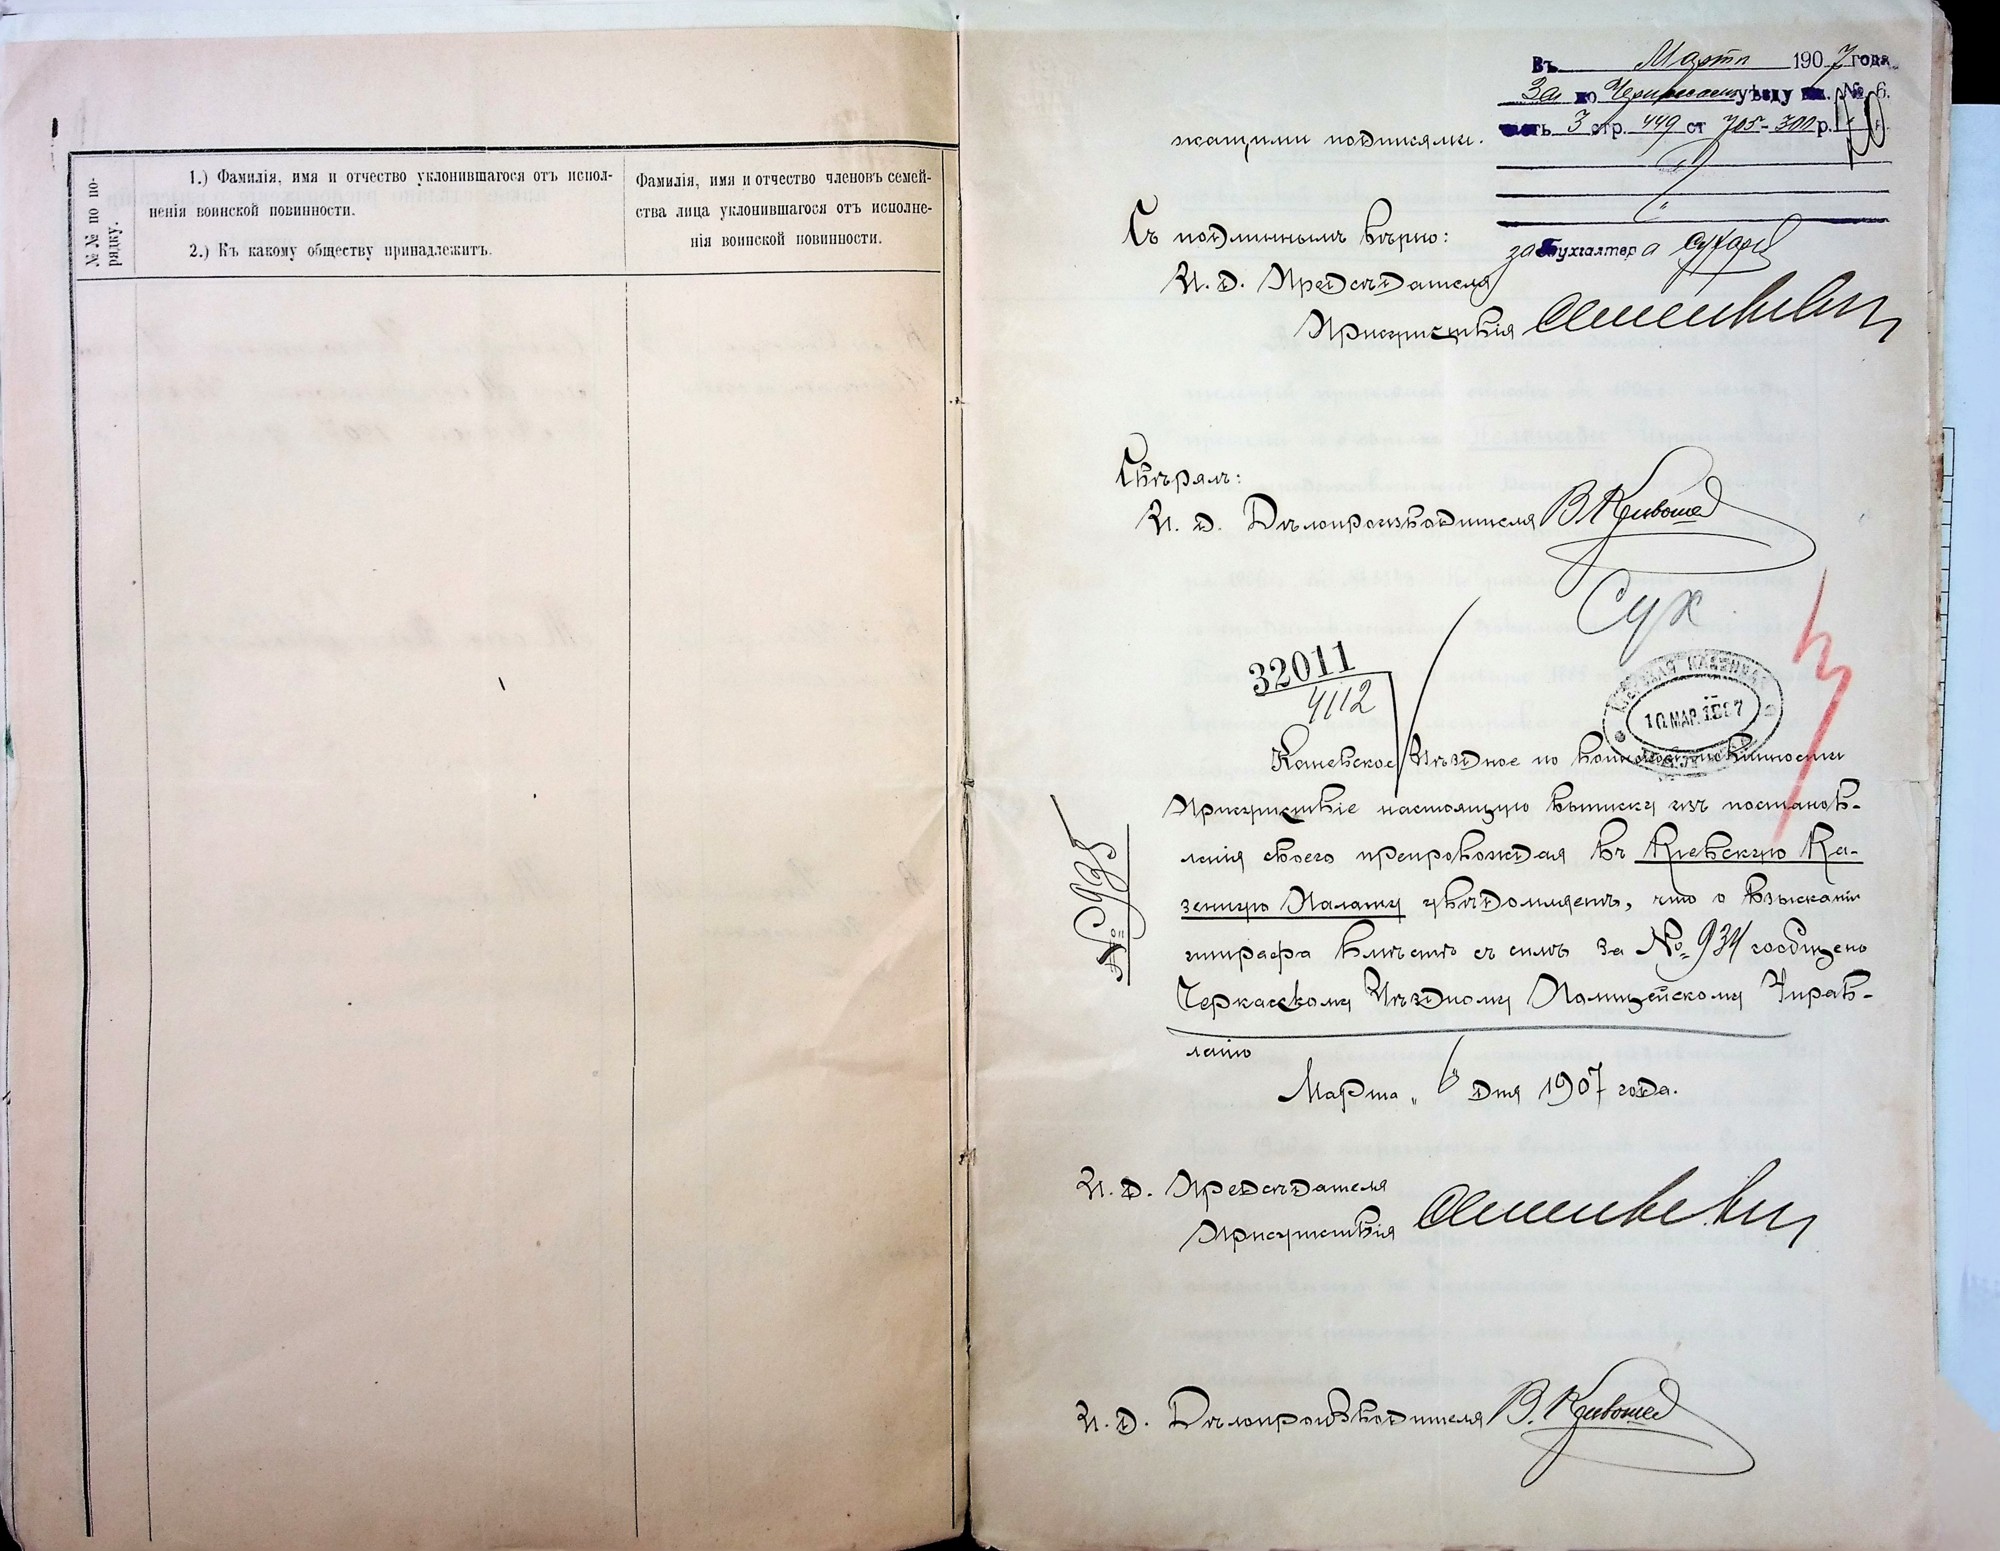 №№ по по-
рядку.
1.) Фамилія, имя и отчество уклонившагося отъ испол-
ненія воинской повинности.
2.) Къ какому обществу принадлежитъ.
Фамилія, имя и отчество членовъ семей-
ства лица уклонившагося отъ исполне-
нія воинской повинности.
Въ Марта 1907 года
За по Черкасскому уѣзду кн. № 6.
часть 3 стр. 449 ст 705-300 р.
за Бухгалтера
жащими подписями.
Съ подлиннымъ вѣрно:
И. д. Предсѣдателя
Присутствія
Свѣрялъ:
И. д. Дѣлопроизводителя
Сух
32011
4112
10 МАР. 1907
Каневское Уѣздное по воинской повинности
Присутствіе настоящую выписку изъ постанов-
ленія своего препровождая въ Кіевскую Ка-
зенную Палату увѣдомляетъ, что о взысканіи
штрафа вмѣстѣ съ симъ за № 934 сообщено
Черкасскому Уѣздному Полицейскому Управ-
ленію
Марта „6" дня 1907 года.
№ 935
И. д. Предсѣдателя
Присутствія
И. д. Дѣлопроизводителя